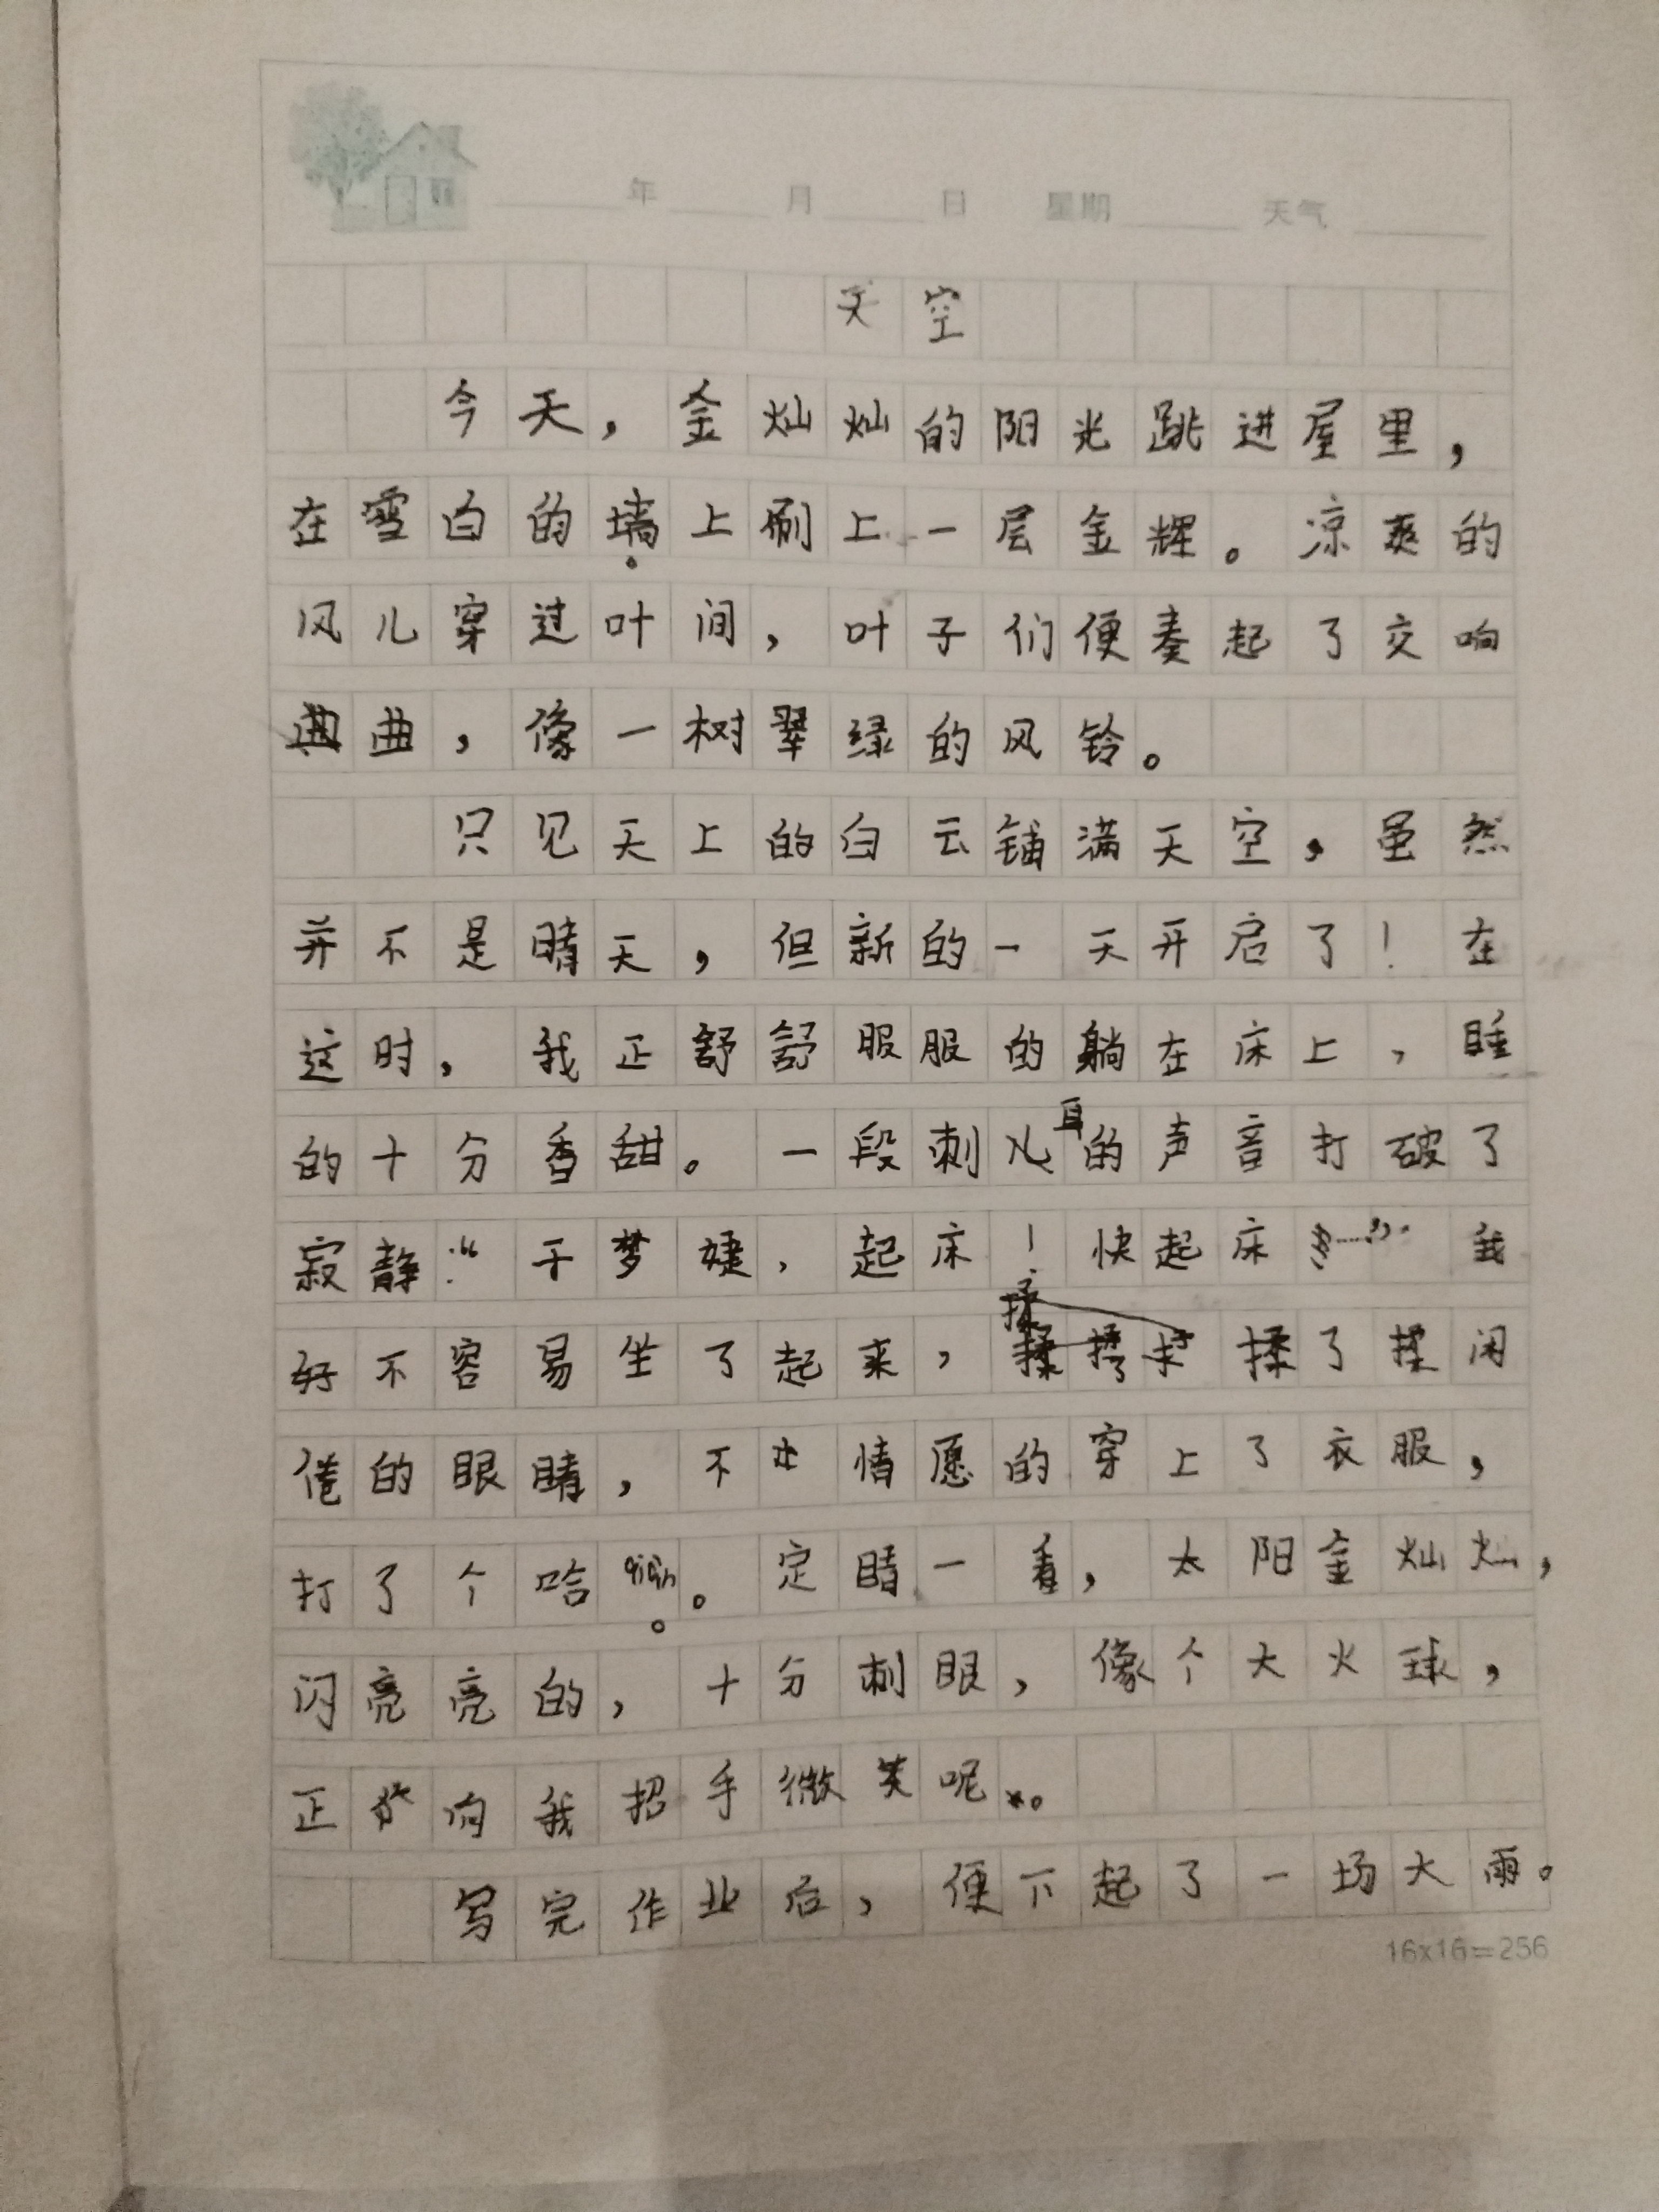 年 月 日 星期 天气
天空
今天，金灿灿的阳光跳进屋里，
在雪白的墙上刷上一层金辉。凉爽的
风儿穿过叶间，叶子们便奏起了交响
曲，像一树翠绿的风铃。
只见天上的白云铺满天空，虽然
并不是晴天，但新的一天开启了！在
这时，我正舒舒服服的躺在床上，睡
的十分香甜。一段刺耳的声音打破了
寂静：“于梦婕，起床！快起床……”我
好不容易坐了起来，揉了揉闲
倦的眼睛，不情愿的穿上了衣服，
打了个哈qiàn。定睛一看，太阳金灿灿，
闪亮亮的，十分刺眼，像个大火球，
正向我招手微笑呢。
写完作业后，便下起了一场大雨。
16x16=256